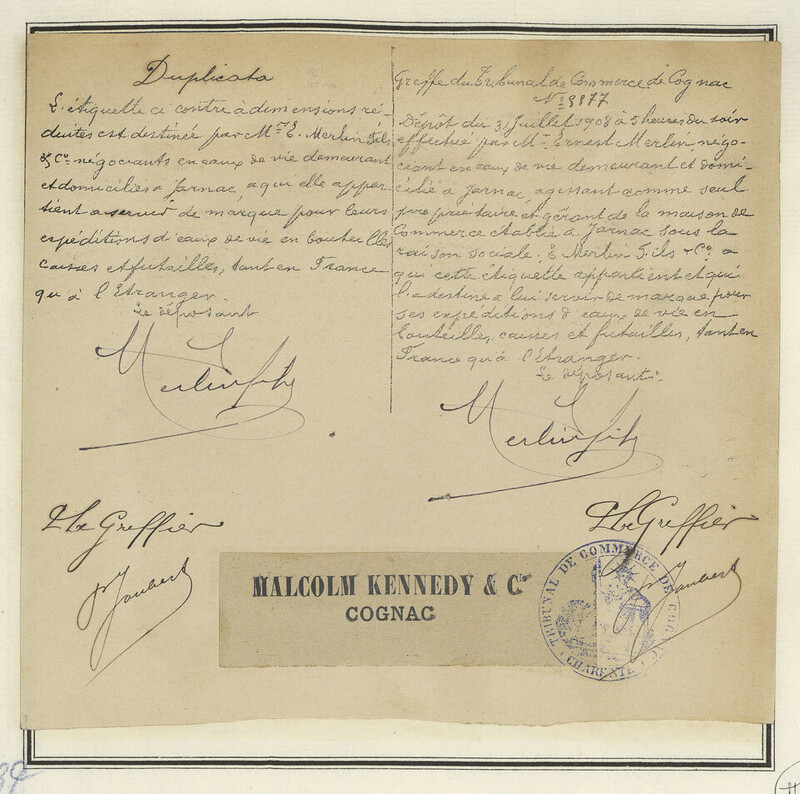 Duplicata
L'étiquette ci contre à dimensions ré-
duites est destinée par Mr E. Merlin Fils
& Co. négociants en eaux de vie demeurant
et domiciliés à Jarnac, a qui elle appar
tient a servir de marque pour leurs
expéditions d'eaux de vie en bouteilles
caisses et futailles, tant en France
qu'à l'Etranger.
Le déposant
Merlin fils
Greffe du Tribunal de Commerce de Cognac
No 9877
Dépôt du 31 Juillet 1908 à 5 heures du soir
effectué par Mr Ernest Merlin négo-
ciant en eaux de vie demeurant et domi-
cilié à Jarnac, agissant comme seul
propriétaire et gérant de la maison de
Commerce établie à Jarnac sous la
raison sociale: E Merlin Fils & Co. a
qui cette étiquette appartient et qui
l'a destine a lui servir de marque pour
ses expéditions d'eaux de vie en
bouteilles, caisses et futailles, tant en
France qu'à l'étranger.
Le déposant.
Merlin fils
Le Greffier
Joubert
Le Greffier
Joubert
MALCOLM KENNEDY & Cie
COGNAC
TRIBUNAL DE COMMERCE DE COGNAC
CHARENTE